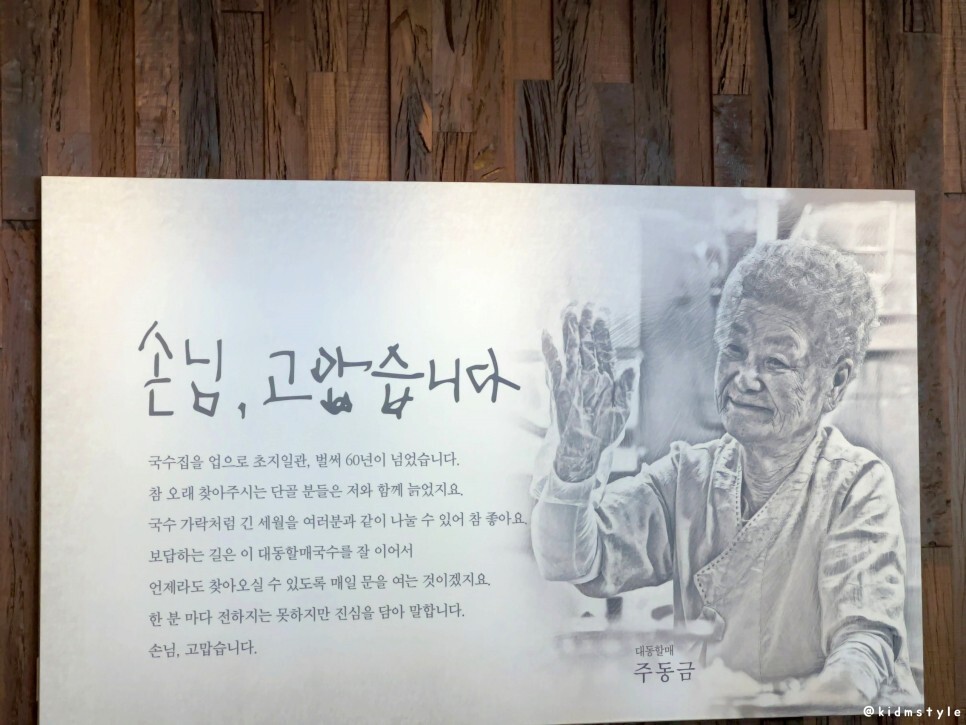 손님, 고맙습니다
국수집을 업으로 초지일관, 벌써 60년이 넘었습니다.
참 오래 찾아주시는 단골 분들은 저와 함께 늙었지요.
국수 가락처럼 긴 세월을 여러분과 같이 나눌 수 있어 참 좋아요.
보답하는 길은 이 대동할매국수를 잘 이어서
언제라도 찾아오실 수 있도록 매일 문을 여는 것이겠지요.
한 분 마다 전하지는 못하지만 진심을 담아 말합니다.
손님, 고맙습니다.
대동할매
주동금
@kidmstyle